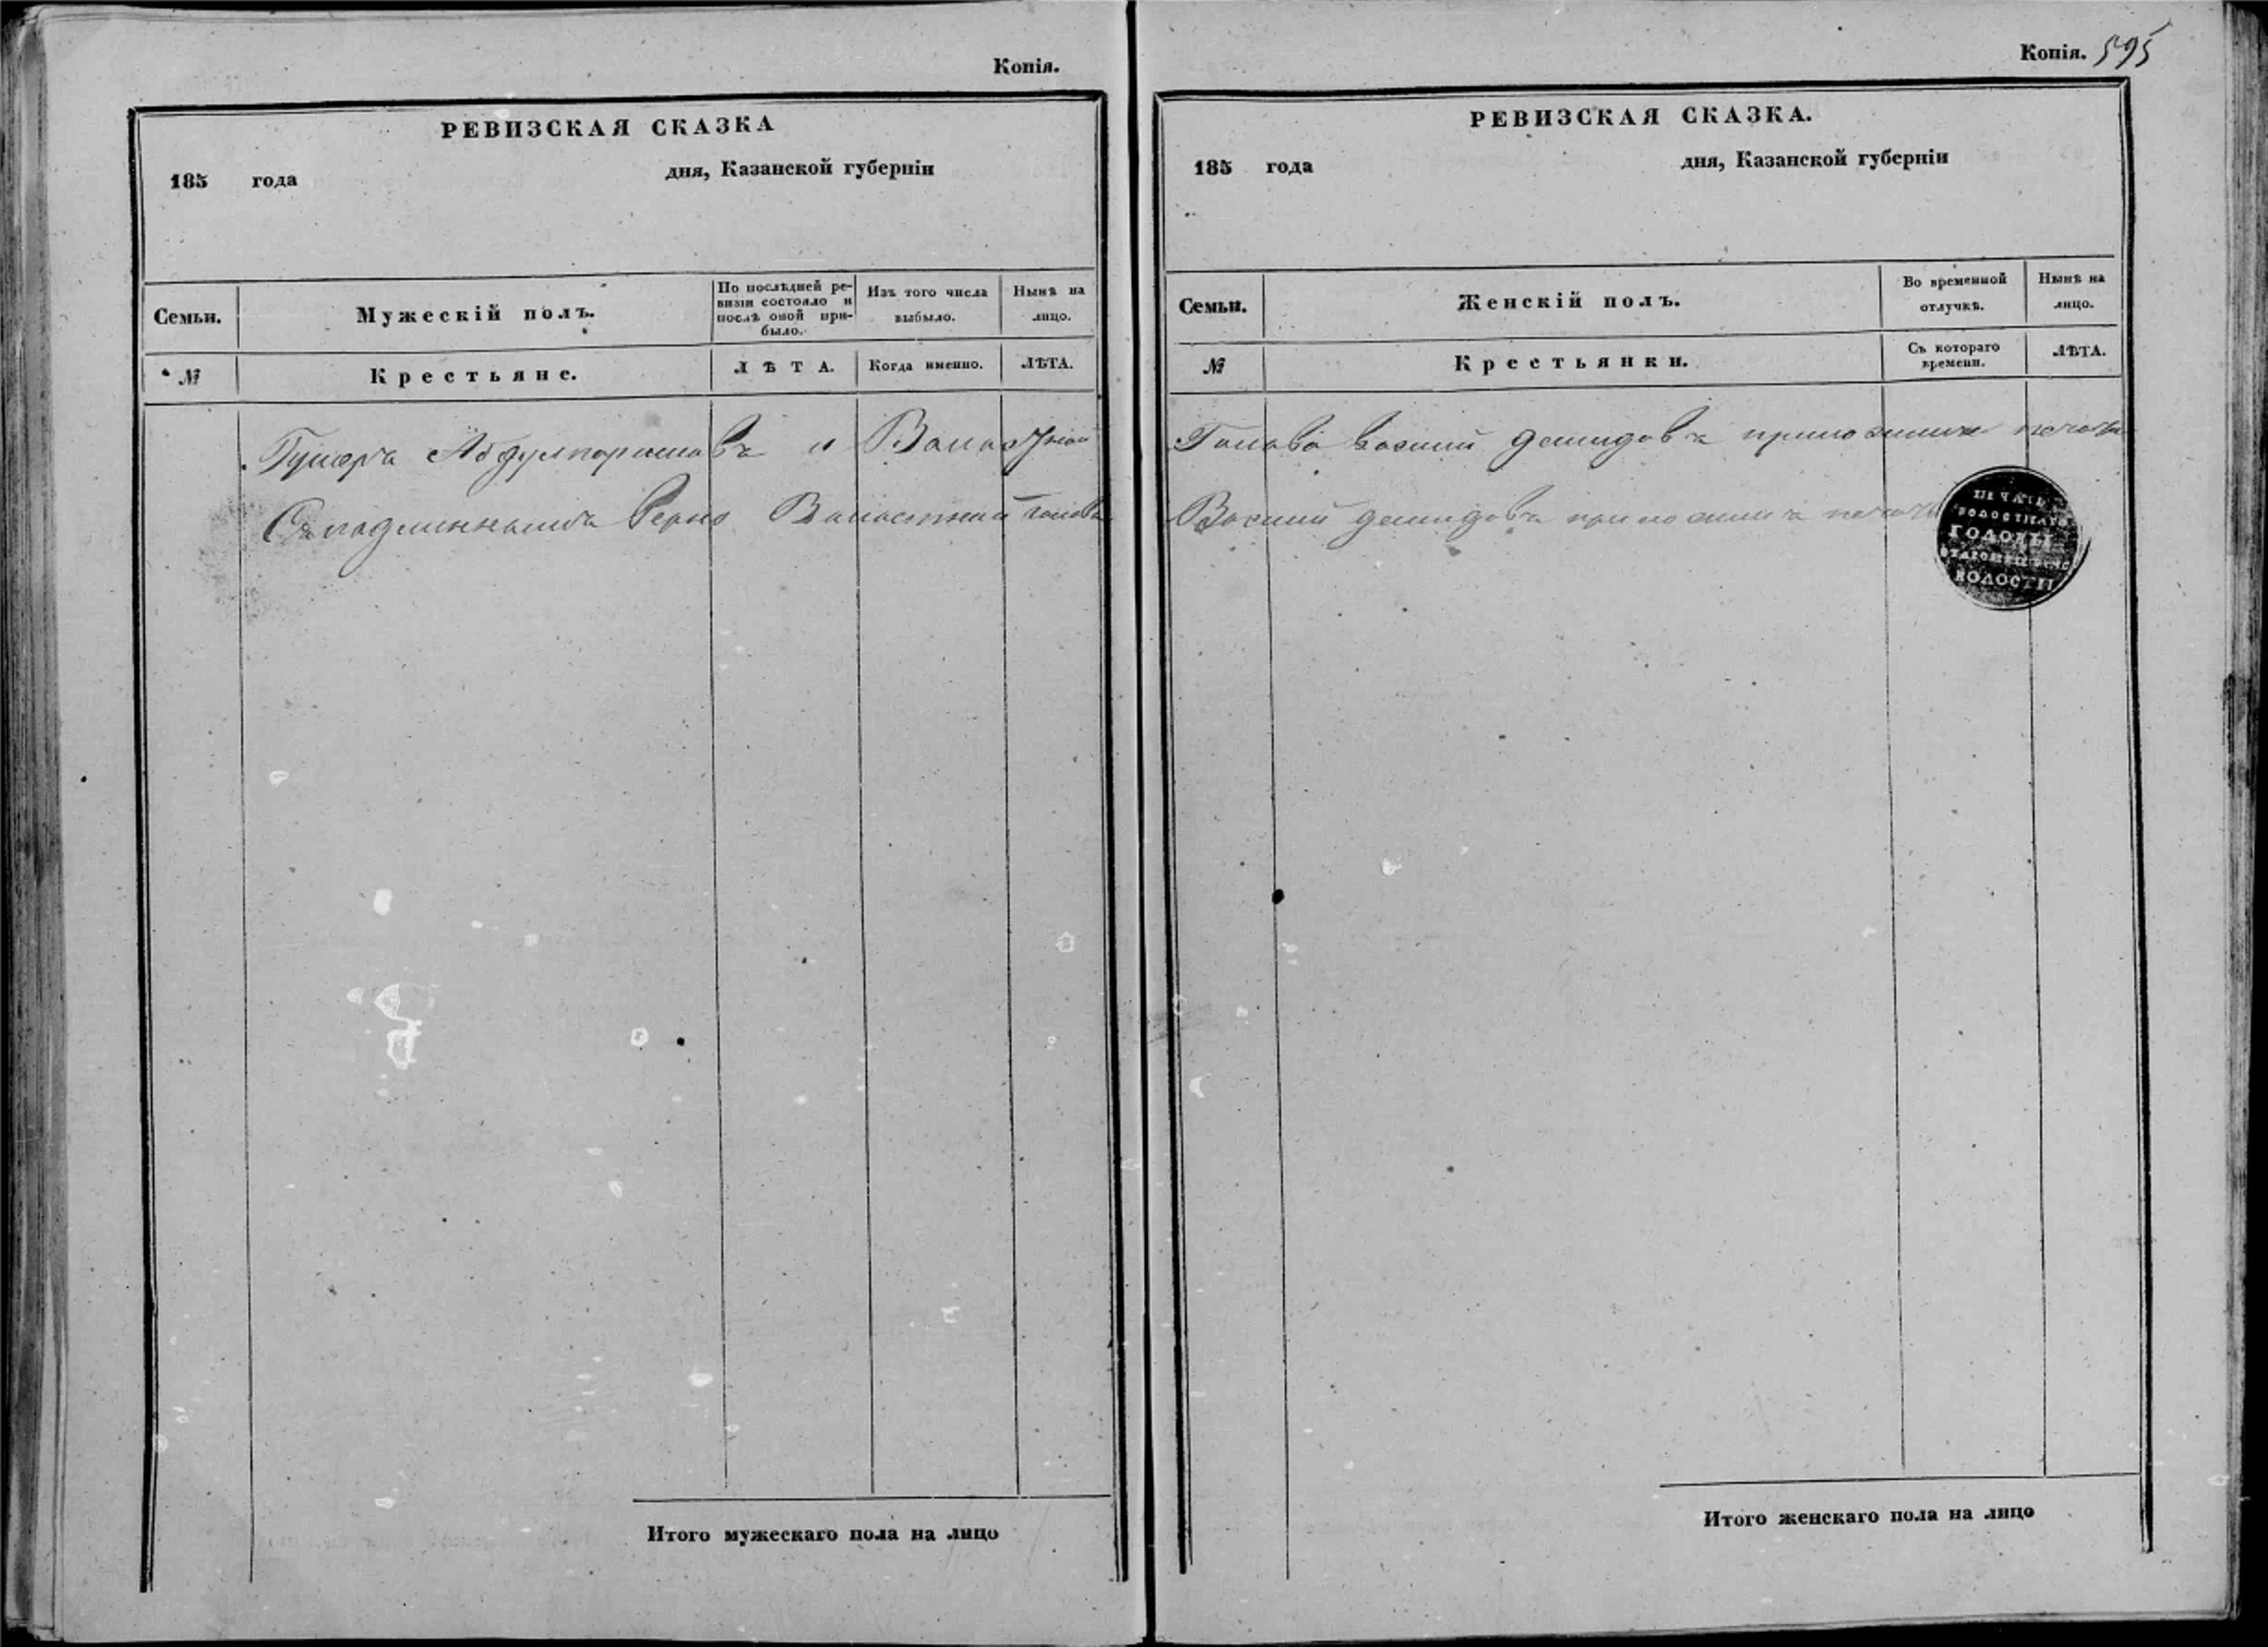 Копія.
РЕВИЗСКАЯ СКАЗКА
185 года дня, Казанской губерніи
Семьи.
Мужескій полъ.
По послѣдней ре-
визіи состояло и
послѣ оной при-
было.
Изъ того числа
выбыло.
Нынѣ на
лицо.
№
Крестьяне.
ЛѢТА.
Когда именно.
ЛѢТА.
Абдулкаримовъ и Валостной
Сподлиннымъ верно Валостной голова
Итого мужескаго пола на лицо
Копія. 595
РЕВИЗСКАЯ СКАЗКА.
185 года дня, Казанской губерніи
Семьи.
Женскій полъ.
Во временной
отлучкѣ.
Нынѣ на
лицо.
№
Крестьянки.
Съ котораго
времени.
ЛѢТА.
Галава Василий демидовъ приложили печати
Василий демидовъ приложилъ печать
ПЕЧАТЬ
ВОЛОСТНАГО
ГОЛОВЫ
ВОЛОСТИ
Итого женскаго пола на лицо